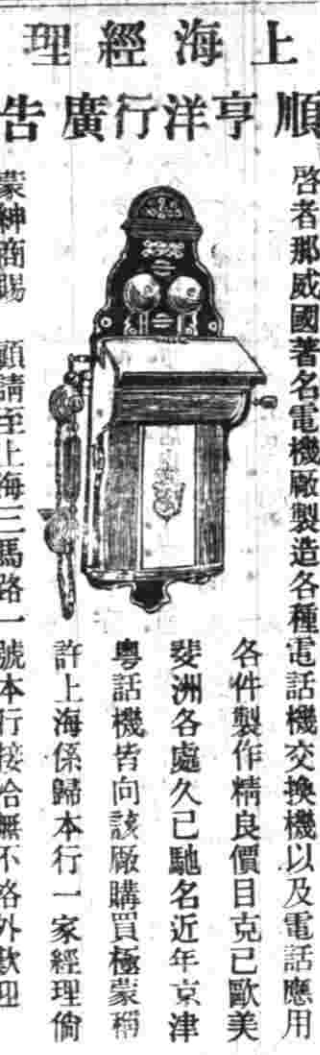 上海經理
順亨洋行廣告
啓者那威國著名電機廠製造各種電話機交換機以及電話應用
各件製作精良價目克己歐美
斐洲各處久已馳名近年京津
粵話機皆向該廠購買極蒙稱
許上海係歸本行一家經理倘
蒙紳商賜顧請至上海三馬路一號本行接洽無不格外歡迎